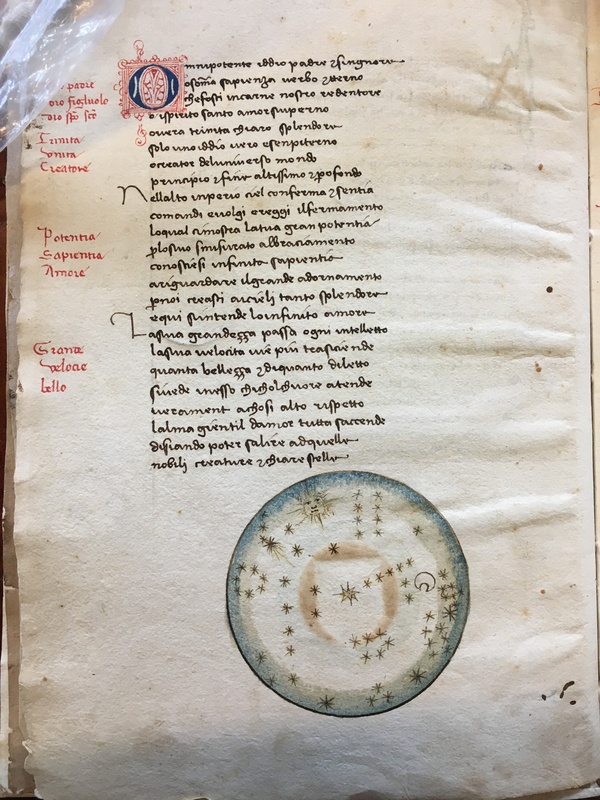 padre
dio figliuolo
dio spo sco
Trinita
Vnita
Creatore
Potentia
Sapientia
Amore
Grande
Veloce
bello
Omnipotente iddio padre 7signore
osoma sapienza verbo 7terno
chefosti incarne nostro redentore
o spirito santo amorsuperno
overa trinita chiaro splendore
solo unoiddio vero esenpiterno
ocreator deluniverso mondo
principio 7fine altissimo 7profondo
Nellalto inperio ciel conferma 7sentia
comandi evolgi ereggi ilfermamento
loqual cinostra latua gran potentia
plosuo smisurato abbraciamento
conosciesi infinita sapientia
ariguardare ilgrande adornamento
pnoi creasti aicieli tanto splendore
equi sintende loinfinito amore
Lasua grandezza passa ogni intelletto
lasua velocita vie piu trasciende
quanta bellezza 7diquanto diletto
siuede inesso chicholchuore atende
verament achosi alto rispetto
lalma gientil damor tutta sacende
disiando poter salire adquelle
nobili creature 7chiare stelle